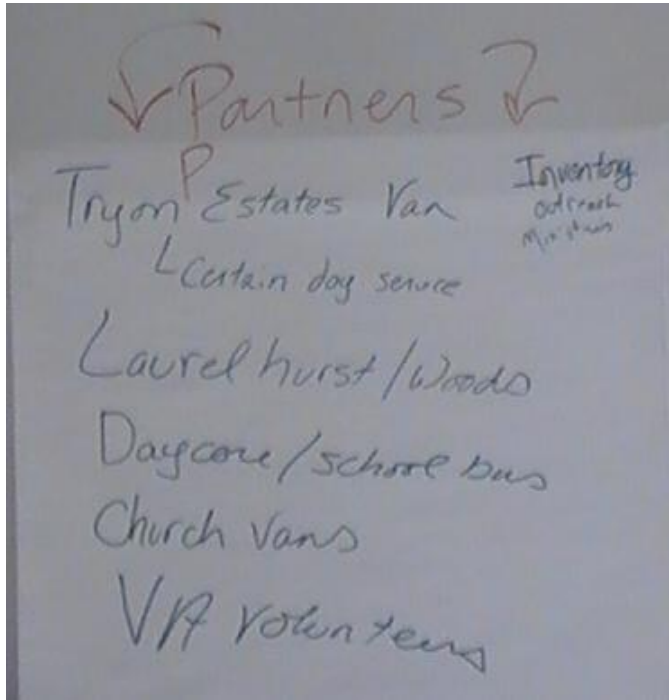 Partners
P
Tryon Estates Van
Inventory
outreach
Ministries
Certain day service
Laurelhurst/Woods
Daycare/school bus
Church Vans
VA Volunteers